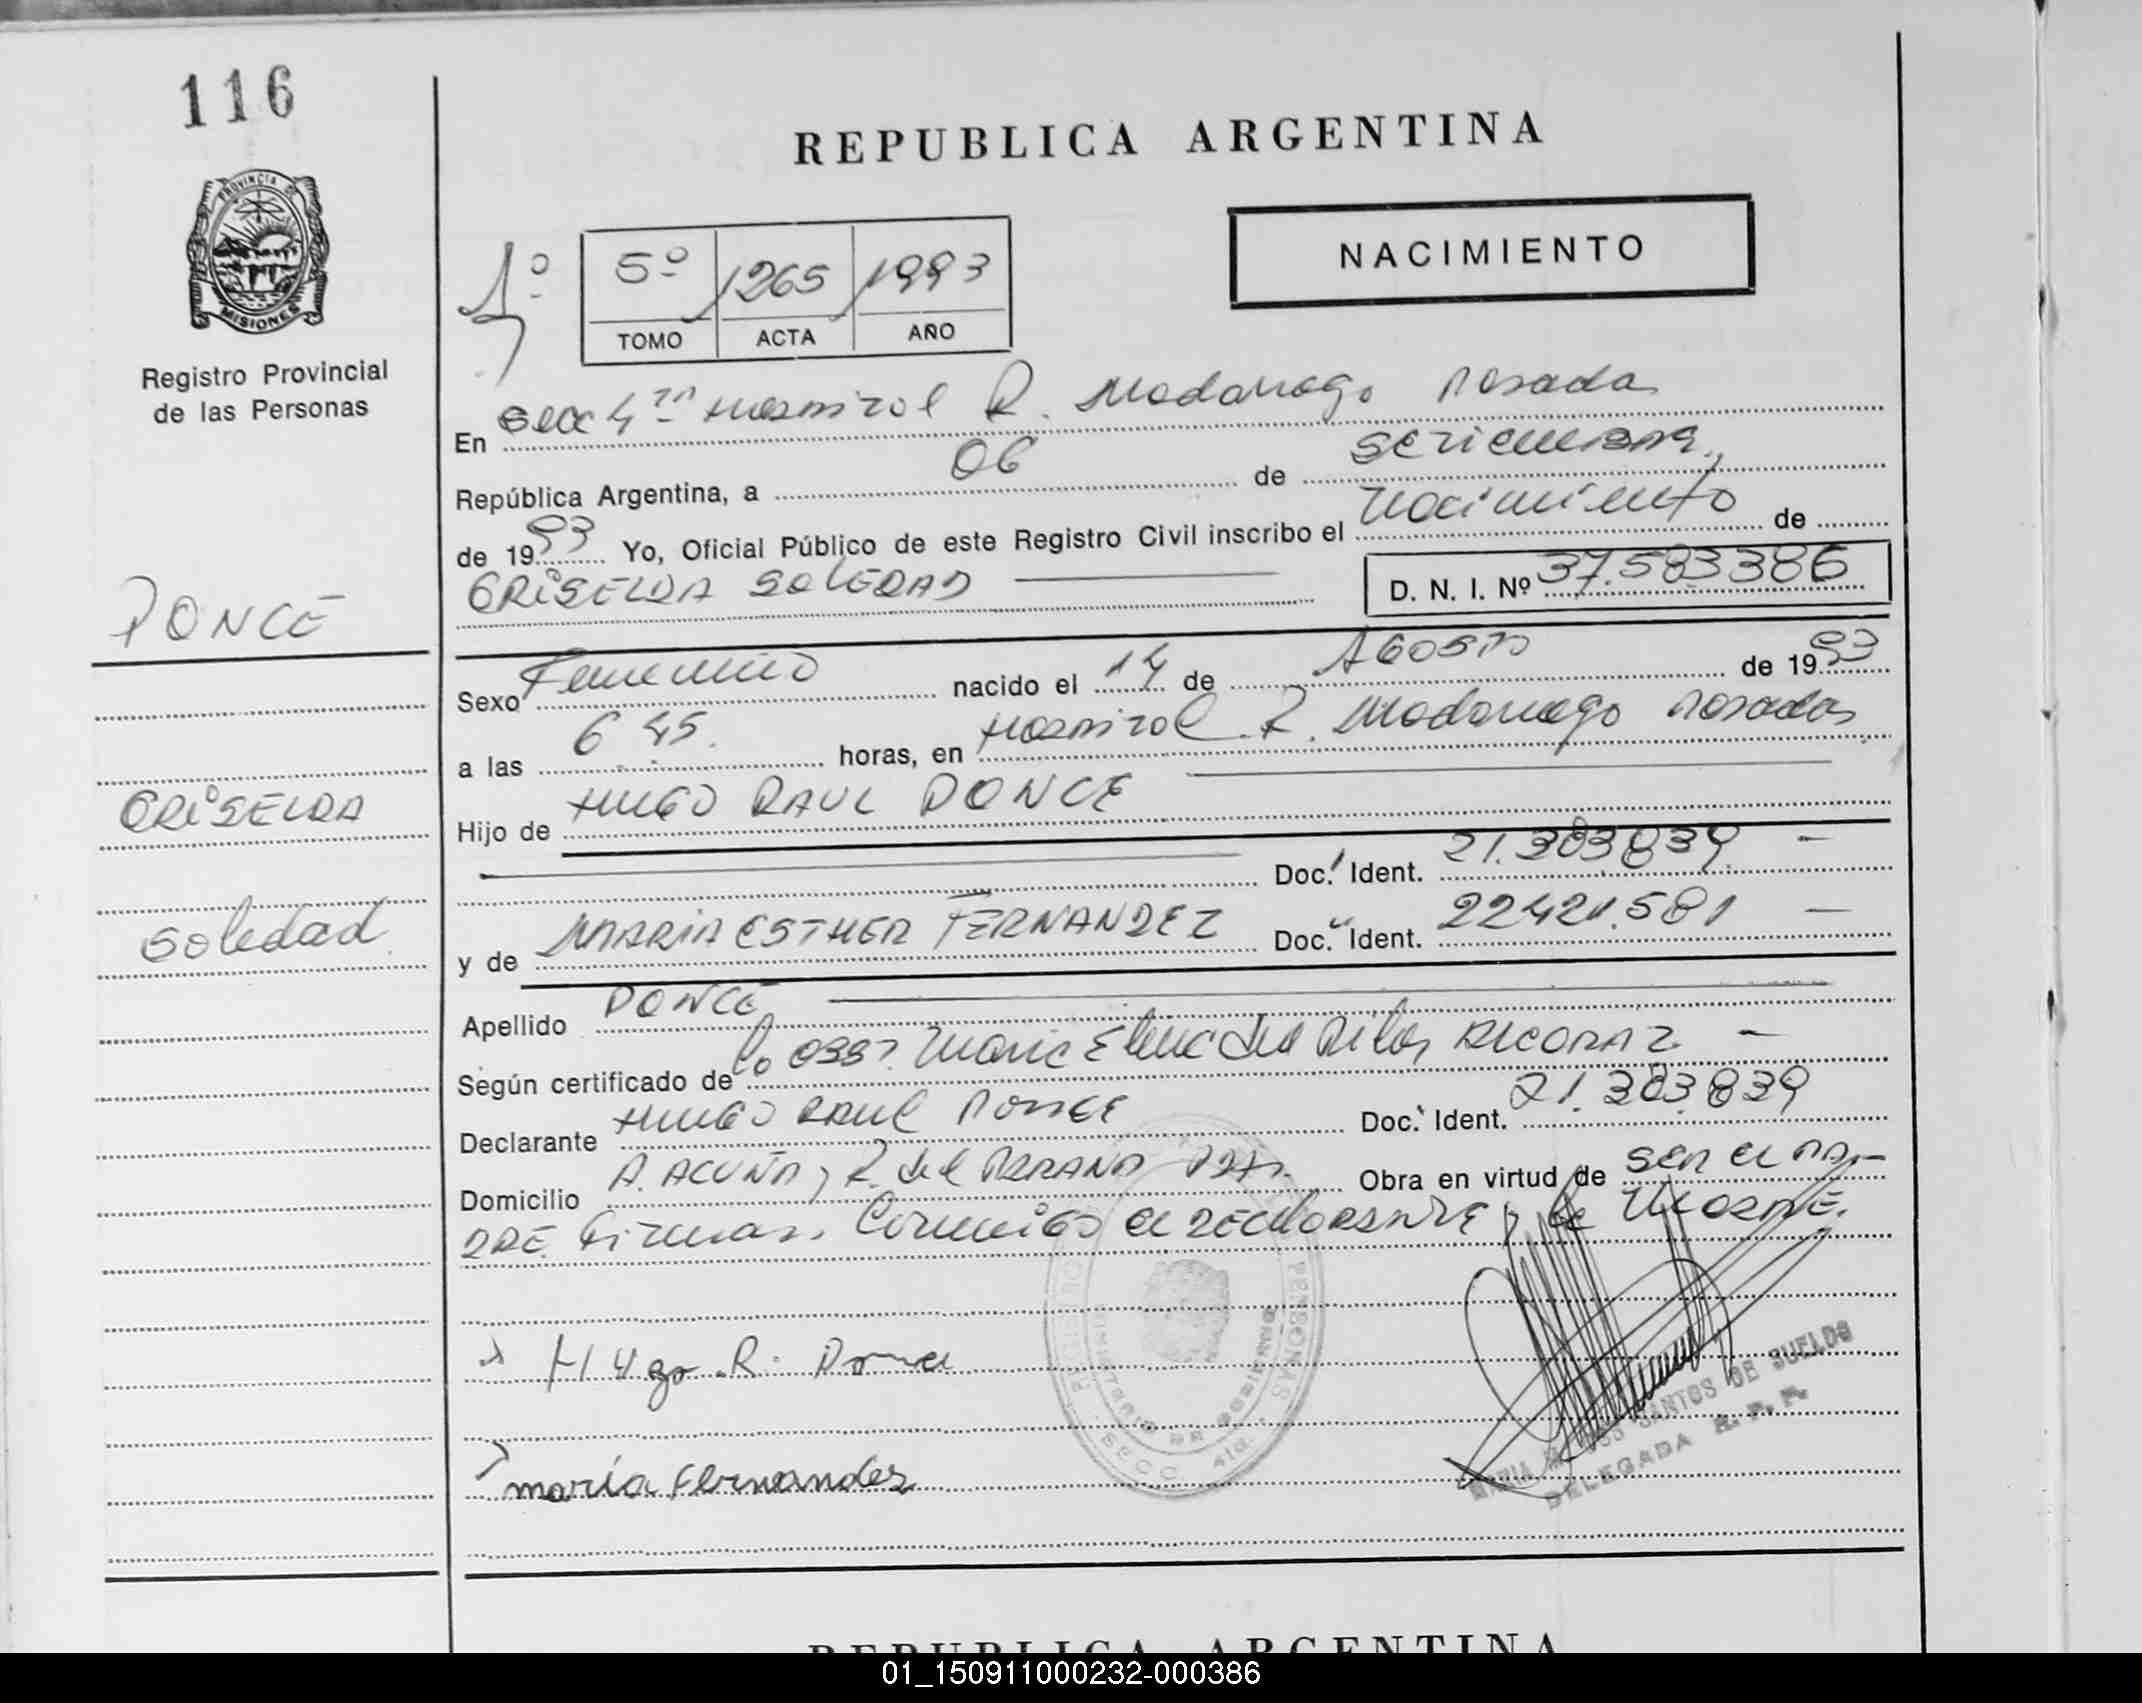 116
REPUBLICA ARGENTINA
PROVINCIA DE
MISIONES
Registro Provincial
de las Personas
NACIMIENTO
1º
5º 1265 1993
TOMO ACTA AÑO
En Secc 4ta Hospital R. Madariaga Posadas
República Argentina, a 06 de Setiembre,
de 1993 Yo, Oficial Público de este Registro Civil inscribo el Nacimiento de
GRISELDA SOLEDAD
D. N. I. Nº 37.583386
PONCE
Sexo Femenino nacido el 14 de AGOSTO de 1993
a las 6 45. horas, en Hospital R. Madariaga Posadas
GRISELDA
Hijo de HUGO RAUL PONCE
Doc. Ident. 21.303.839.
Soledad
y de MARIA ESTHER FERNANDEZ Doc. Ident. 22421.581
Apellido PONCE
Según certificado de la Obst. Maria Elena del Pilar
Declarante HUGO RAUL PONCE Doc. Ident. 21.303.839
Domicilio A. ACUÑA y R. del Obra en virtud de SER EL PA-
DRE. Firman. Conmigo el DECLARANTE y la MADRE.
Hugo R. Ponce
maría Fernandez
MARIA DOS SANTOS DE SUELDO
DELEGADA R. P. P.
REPUBLICA ARGENTINA
01_150911000232-000386